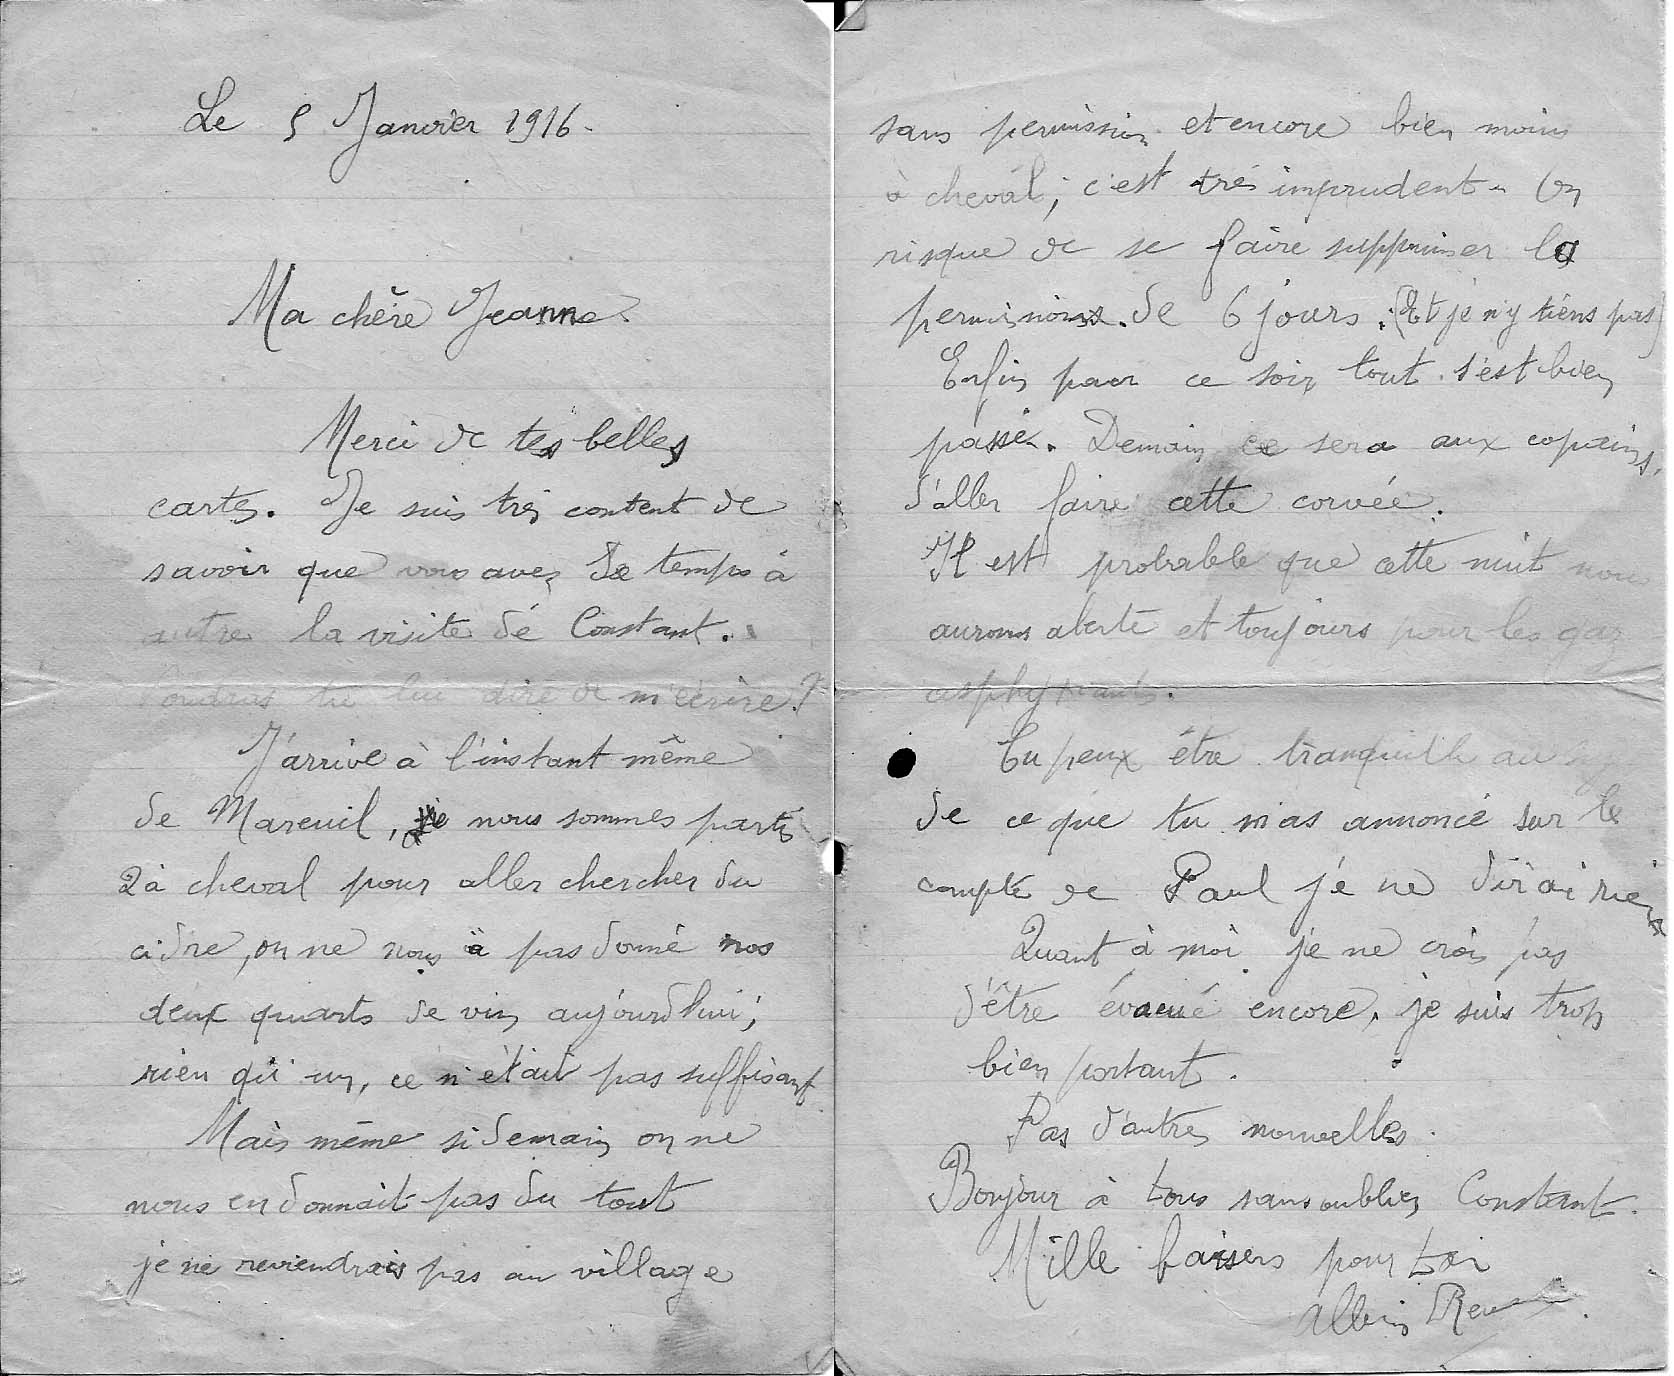 Le 5 Janvier 1916.
Ma chère Jeanne.
Merci de tes belles
cartes. Je suis très content de
savoir que vous avez de temps à
autre la visite de Constant.
Voudras tu lui dire de m'écrire ?
J'arrive à l'instant même
de Mareuil, nous sommes partis
2 à cheval pour aller chercher du
cidre, on ne nous a pas donné nos
deux quarts de vin aujourd'hui,
rien qu'un, ce n'était pas suffisant
Mais même si demain on ne
nous en donnait pas du tout
je ne reviendrais pas au village
sans permission et encore bien moins
à cheval, c'est très imprudent. On
risque de se faire supprimer la
permission de 6 jours. (Et je n'y tiens pas)
Enfin pour ce soir tout s'est bien
passé. Demain ce sera aux copains,
d'aller faire cette corvée.
Il est probable que cette nuit nous
aurons alerte et toujours pour les gaz
asphyxiants.
Tu peux être tranquille au
de ce que tu m'as annoncé sur le
compte de Paul je ne dirai rien
Quant à moi je ne crois pas
d'être évacué encore, je suis trop
bien portant.
Pas d'autres nouvelles.
Bonjour à tous sans oublier Constant.
Mille baisers pour toi
Albin